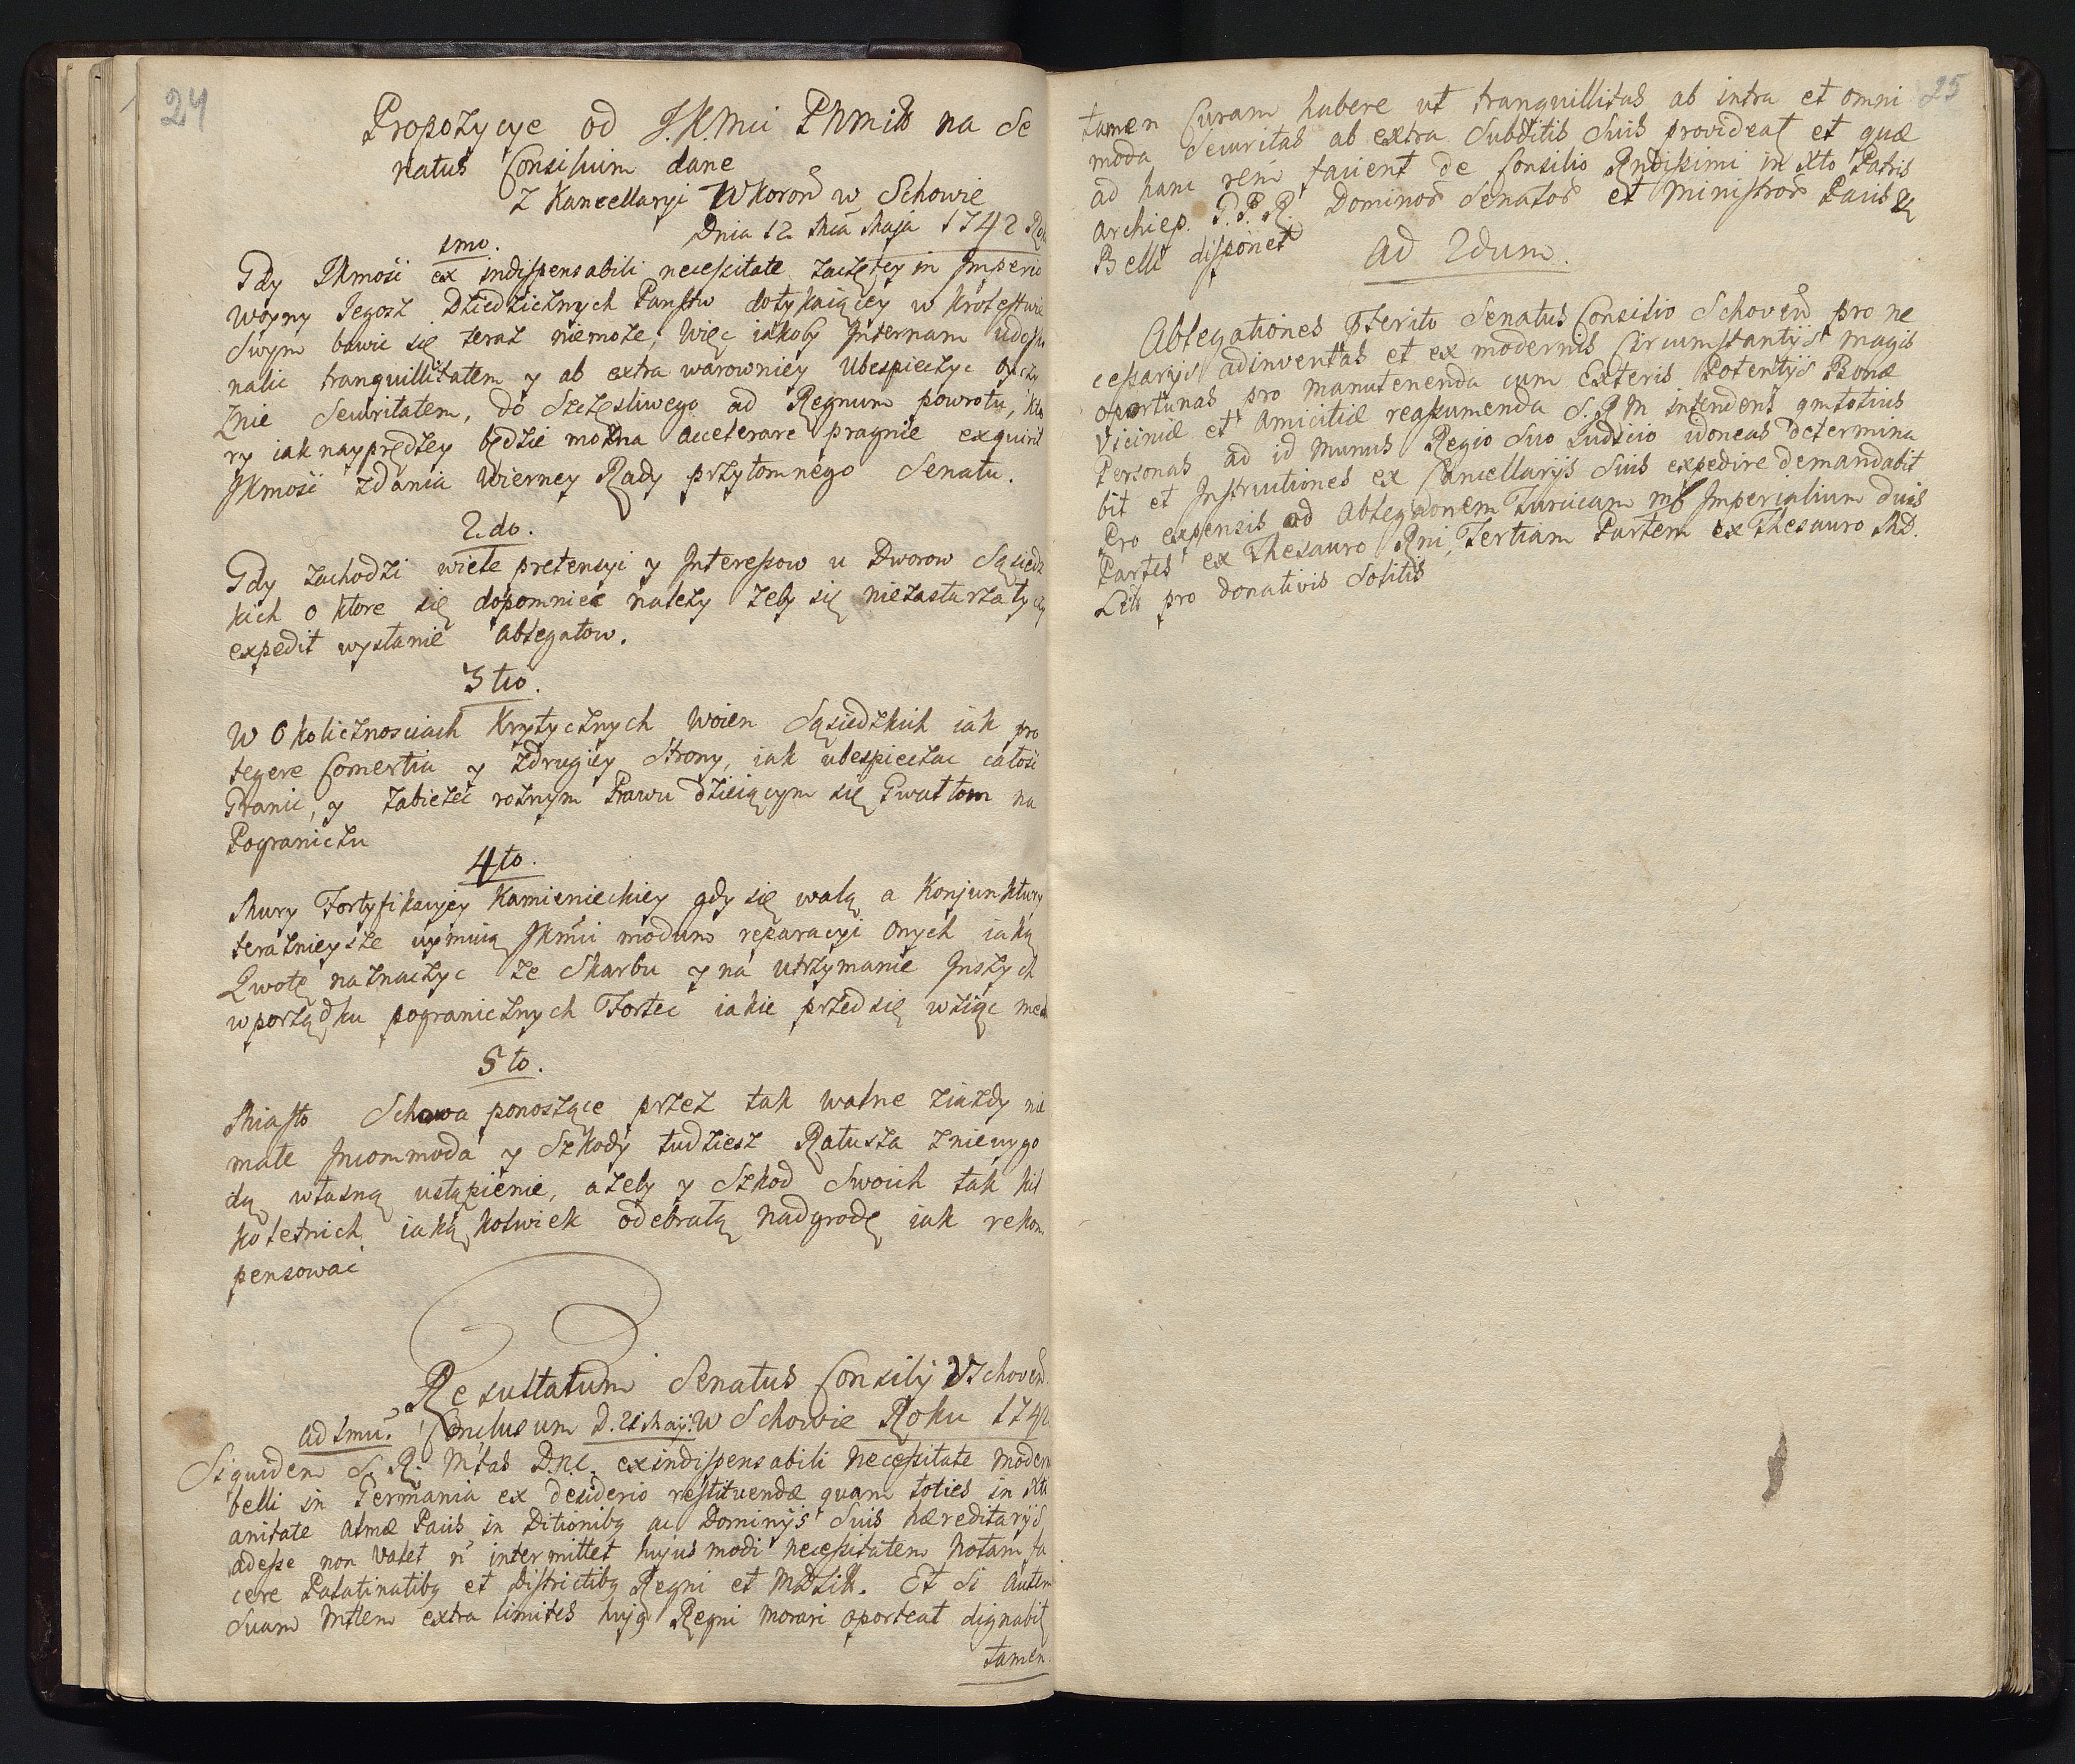 24
Propozycye od J.K.Mci PNMiło na Se
natus Consilium dane
Z Kancellaryi WKoron̄ w Schowie
Dnia 12 Mca Maja 1742 Rou
1mo.
Gdy JKmość ex indispensabili necessitate zaczętey in Imperio
Woyny Jegosz Dziedzicznych Państw dotykaiącey w Krolestwie
Swym bawić się teraz niemoże; Więc iakoby Internam udosko
nalić tranquillitatem y ab extra warowniey Ubespieczyc Oyczy
znie Securitatem, do Szczęsliwego ad Regnum powrotu, kto
ry iak nayprędzey będzie można accelerare pragnie exquirit
JKmość zdania Wierney Rady przytomnego Senatu.
2.do.
Gdy zachodzi wiele pretensyi y Interessow u Dworow Sąsiedz
kich o ktore się dopomniec należy żeby się niezastarzały
expedit wysłanie Ablegatow.
3tio.
W Okolicznosciach Krytycznych Woien Sąsiedzkich iak pro
tegere Comertia y zdrugiey Strony, iak ubespieczac całość
Granic, y zabieżeć rożnym Prawu dzieiącym się Gwałtom na
Pograniczu
4to.
Mury Fortyfikacyey Kamienieckiey gdy się walą a Konjunktury
teraznieysze uymuią JKmci modum reparacyi Onych iaką
Qwotę naznaczyc ze Skarbu y na utrzymanie Inszych
wporządku pogranicznych Fortec iakie przedsię wziąc med
5to.
Miasto Schowa ponoszące przez tak walne ziazdy nie
małe Incommoda y Szkody tudziesz Ratusza zniewygo
dą własną ustąpienie, ażeby y Szkod Swoich tak kil
koletnich iakąkolwiek odebrały nadgrodę iak rekom
pensować
Resultatum Senatus Consilij Vschovēn
ad 1mū. Conclusum D. 21 Maij. W Schowie Roku 1742
Siquidem S. R. Mtas D.N.C. ex indispensabili necessitate modern
belli in Germania ex desiderio restituendæ quam toties in Xti
anitate almæ Pacis in Ditionibq ac Dominijs Suis hæreditarijs
adesse non valet n̄ intermittet hujus modi necessitatem Notam fa
cere Palatinatibq et Districtibq Regni et MDLitt. Et Si Autem
Suam Mttem extra limites hujq Regni morari oporteat dignabit
tamen
25
tamen Curam habere ut tranquillitas ab intra et omni
moda Securitas ab extra Subditis Suis provideat et quæ
ad hanc rem facient de Consilio Rndissimi in Xto Patris
Archiep. P.P.R. Dominor Senator et Ministror Pacis &
Belli disponet
Ad 2dum.
Ablegationes Pterito Senatus Consilio Schovēn pro ne
cessarijs adinventas et ex modernis Circumstantijs magis
oportunas pro manutenenda cum Exteris Potentijs Bonæ
Viciniæ et Amicitiæ reassumenda S. R. M intendens qmtotius
Personas ad id Munus Regio Suo Judicio idoneas determina
bit et Instructiones ex Cancellarijs Suis expedire demandabit
Pro expensis ad Ablegaōnem Turcicam Imperialium duas
Partes ex Thesauro Rni, Tertiam Partem ex Thesauro MD.
Litt pro donativis Solitis